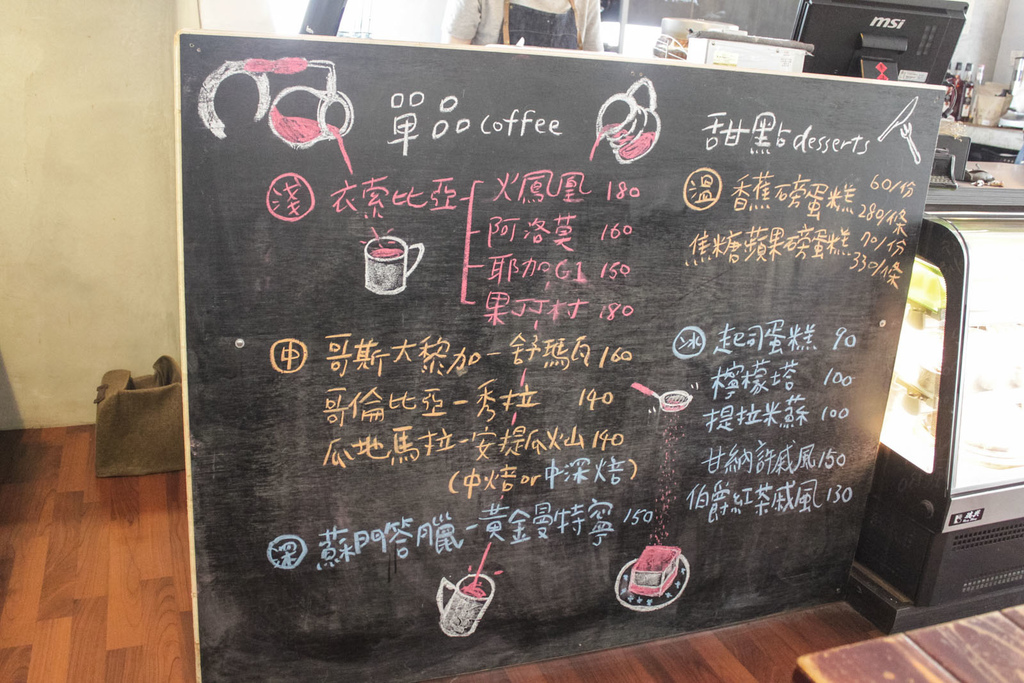 msi
單品 coffee
淺 衣索比亞 火鳳凰 180
阿洛莫 160
耶加G1 150
果丁丁村 180
中 哥斯大黎加-舒瑪瓦 160
哥倫比亞-秀拉 140
瓜地馬拉-安提瓜火山 140
(中焙or中深焙)
深 蘇門答臘-黃金曼特寧 150
甜點 desserts
溫 香蕉磅蛋糕 60/份
280/條
焦糖蘋果磅蛋糕 70/份
330/條
冰 起司蛋糕 90
檸檬塔 100
提拉米蘇 100
甘納許戚風 150
伯爵紅茶戚風 130